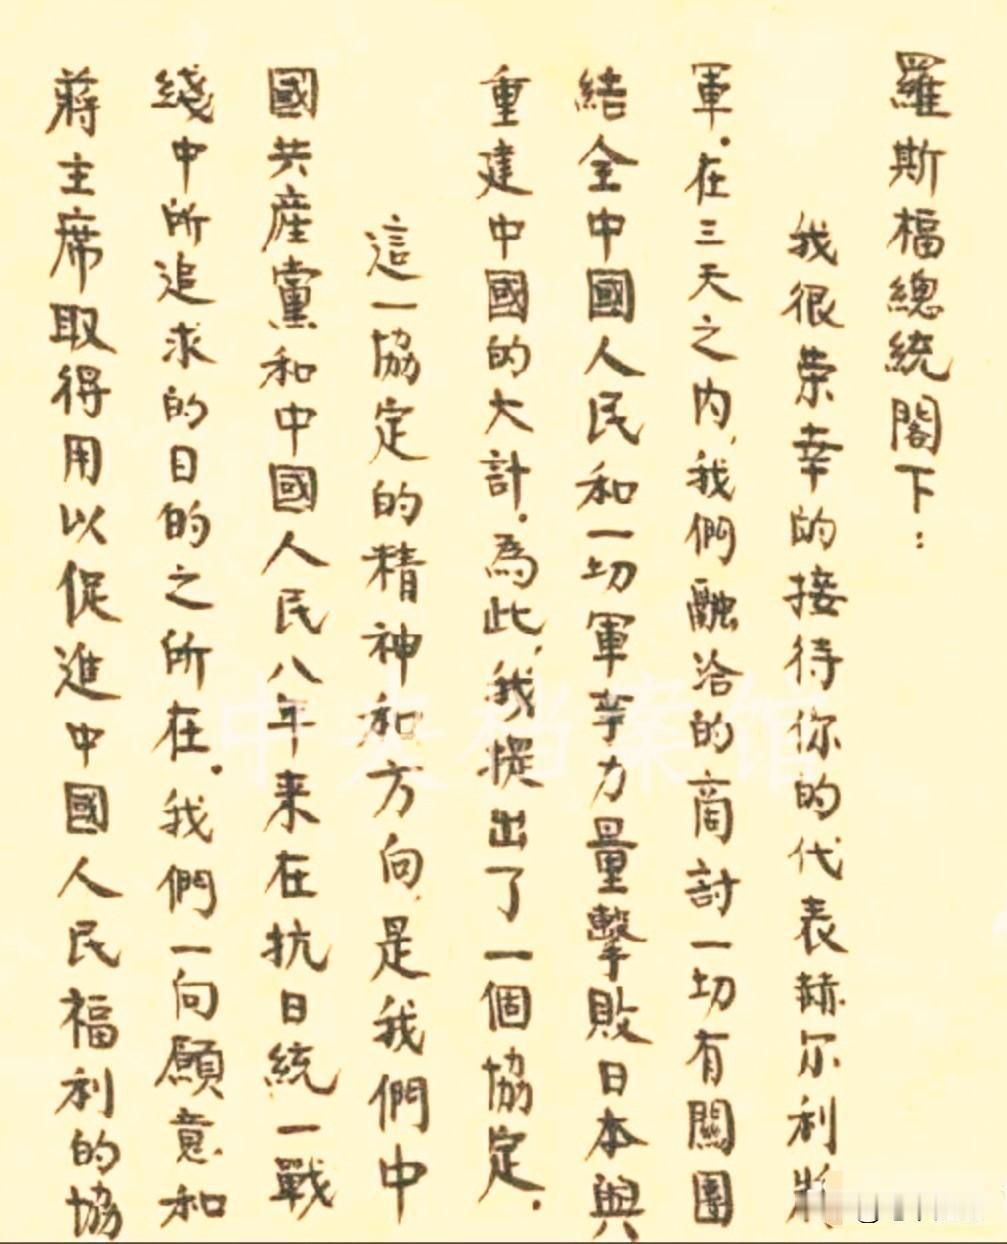 羅斯福總統閣下：
我很荣幸的接待你的代表赫尔利将
軍．在三天之内，我們融洽的商討一切有關團
結全中國人民和一切軍事力量擊敗日本與
重建中國的大計．為此，我提出了一個協定．
這一協定的精神和方向，是我們中
國共産黨和中國人民八年来在抗日統一戰
綫中所追求的目的之所在．我們一向願意和
蔣主席取得用以促進中國人民福利的協
中央档案馆